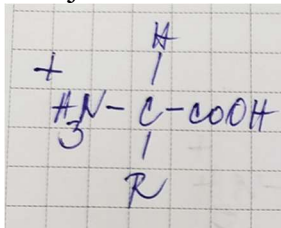 H
+
H3N-C-COOH
R